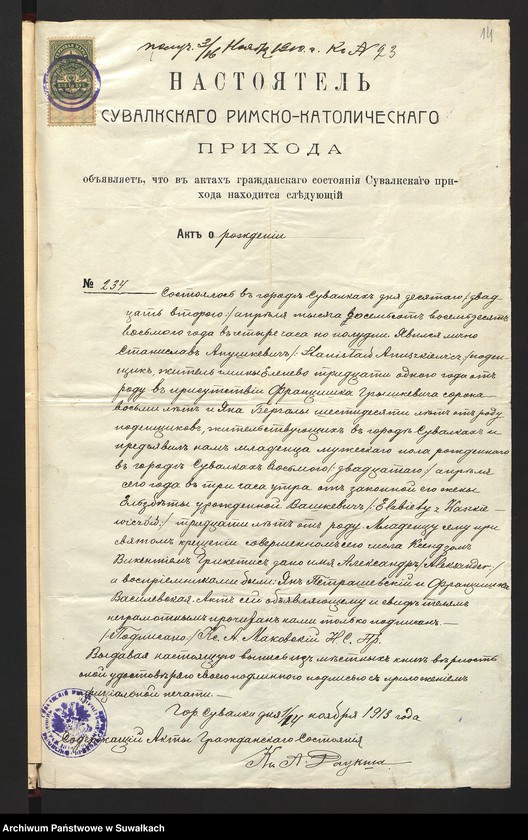 получ. 3/16 Ноя 1910 г. Кс А 23
14
НАСТОЯТЕЛЬ
СУВАЛКСКАГО РИМСКО-КАТОЛИЧЕСКАГО
ПРИХОДА
объявляетъ, что въ актахъ гражданскаго состоянія Сувалкскаго при-
хода находится слѣдующій
Актъ о рожденіи
№ 234
Состоялось въ городѣ Сувалкахъ дня десятаго /двад-
цать второго:/ апрѣля тысяча восемьсотъ восемьдесятъ
восьмого года въ четыре часа по полудни. Явился лично
Станиславъ Анушкевичъ /:Stanisław Anuszkiewicz:/ поден-
щикъ, житель тридцати одного года отъ
роду, въ присутствіи Францишка сорока
восьми лѣтъ и Яна шестидесяти лѣтъ отъ роду
поденщиковъ, жительствующихъ въ городѣ Сувалкахъ и
предъявилъ намъ младенца мужескаго пола рожденного
въ городѣ Сувалкахъ восьмого /:двадцатаго:/ апрѣля
сего года въ три часа утра отъ законной его жены
Ельзбѣты урожденной Вашкевичъ /:Elżbiety z
тридцати лѣтъ отъ роду. Младенцу сему при
святомъ крещеніи совершенномъ сего числа Ксендзомъ
Викентіемъ дано имя Александръ /:Alexander:/
а воспріемниками были: Янъ Петрашевскій и Францишка
Василевская. Актъ сей объявляющему и свидѣтелямъ
неграмотнымъ прочитанъ нами только подписанъ. —
/Подписано/ Кс. А. Маковскій Н. С. Пр.
Выдавая настоящую выпись изъ мѣстныхъ книгъ вѣрность
оной удостовѣряю своею подлинною подписью съ приложеніемъ
оффиціальной печати. —
Гор. Сувалки дня 1/14 ноября 1913 года
Содержащій Акты Гражданскаго Состоянія
Кс. А.
Archiwum Państwowe w Suwałkach